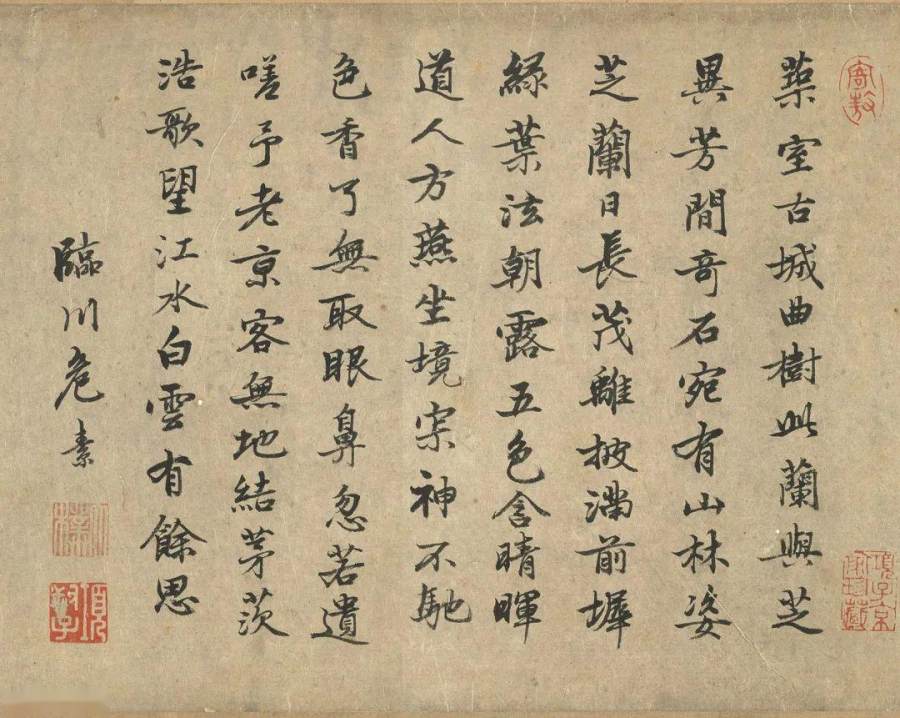 築室古城曲樹此蘭與芝
異芳間奇石宛有山林姿
芝蘭日長茂離披滿前墀
綠葉泫朝露五色含晴暉
道人方燕坐境寂神不馳
色香了無取眼鼻忽若遺
嗟予老京客無地結茅茨
浩歌望江水白雲有餘思
臨川危素
項子京家珍藏